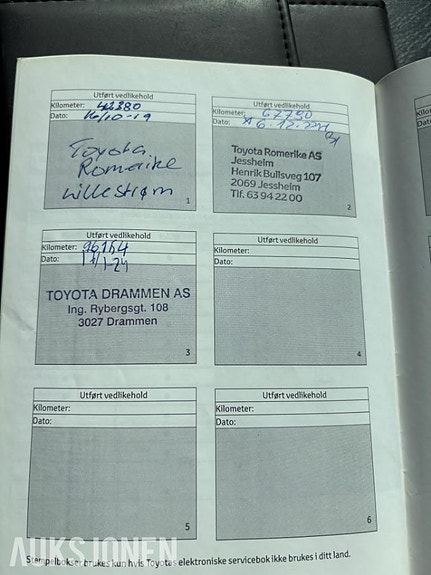 Utført vedlikehold
Kilometer: 42380
Dato: 16/10-19
Toyota
Romerike
Lillestrøm
1
Utført vedlikehold
Kilometer: 67750
Dato:
Toyota Romerike AS
Jessheim
Henrik Bullsveg 107
2069 Jessheim
Tlf. 63 94 22 00
2
Utført vedlikehold
Kilometer: 96154
Dato:
TOYOTA DRAMMEN AS
Ing. Rybergsgt. 108
3027 Drammen
3
Utført vedlikehold
Kilometer:
Dato:
4
Utført vedlikehold
Kilometer:
Dato:
5
Utført vedlikehold
Kilometer:
Dato:
6
Stempelbokser brukes kun hvis Toyotas elektroniske servicebok ikke brukes i ditt land.
AUKSJONEN